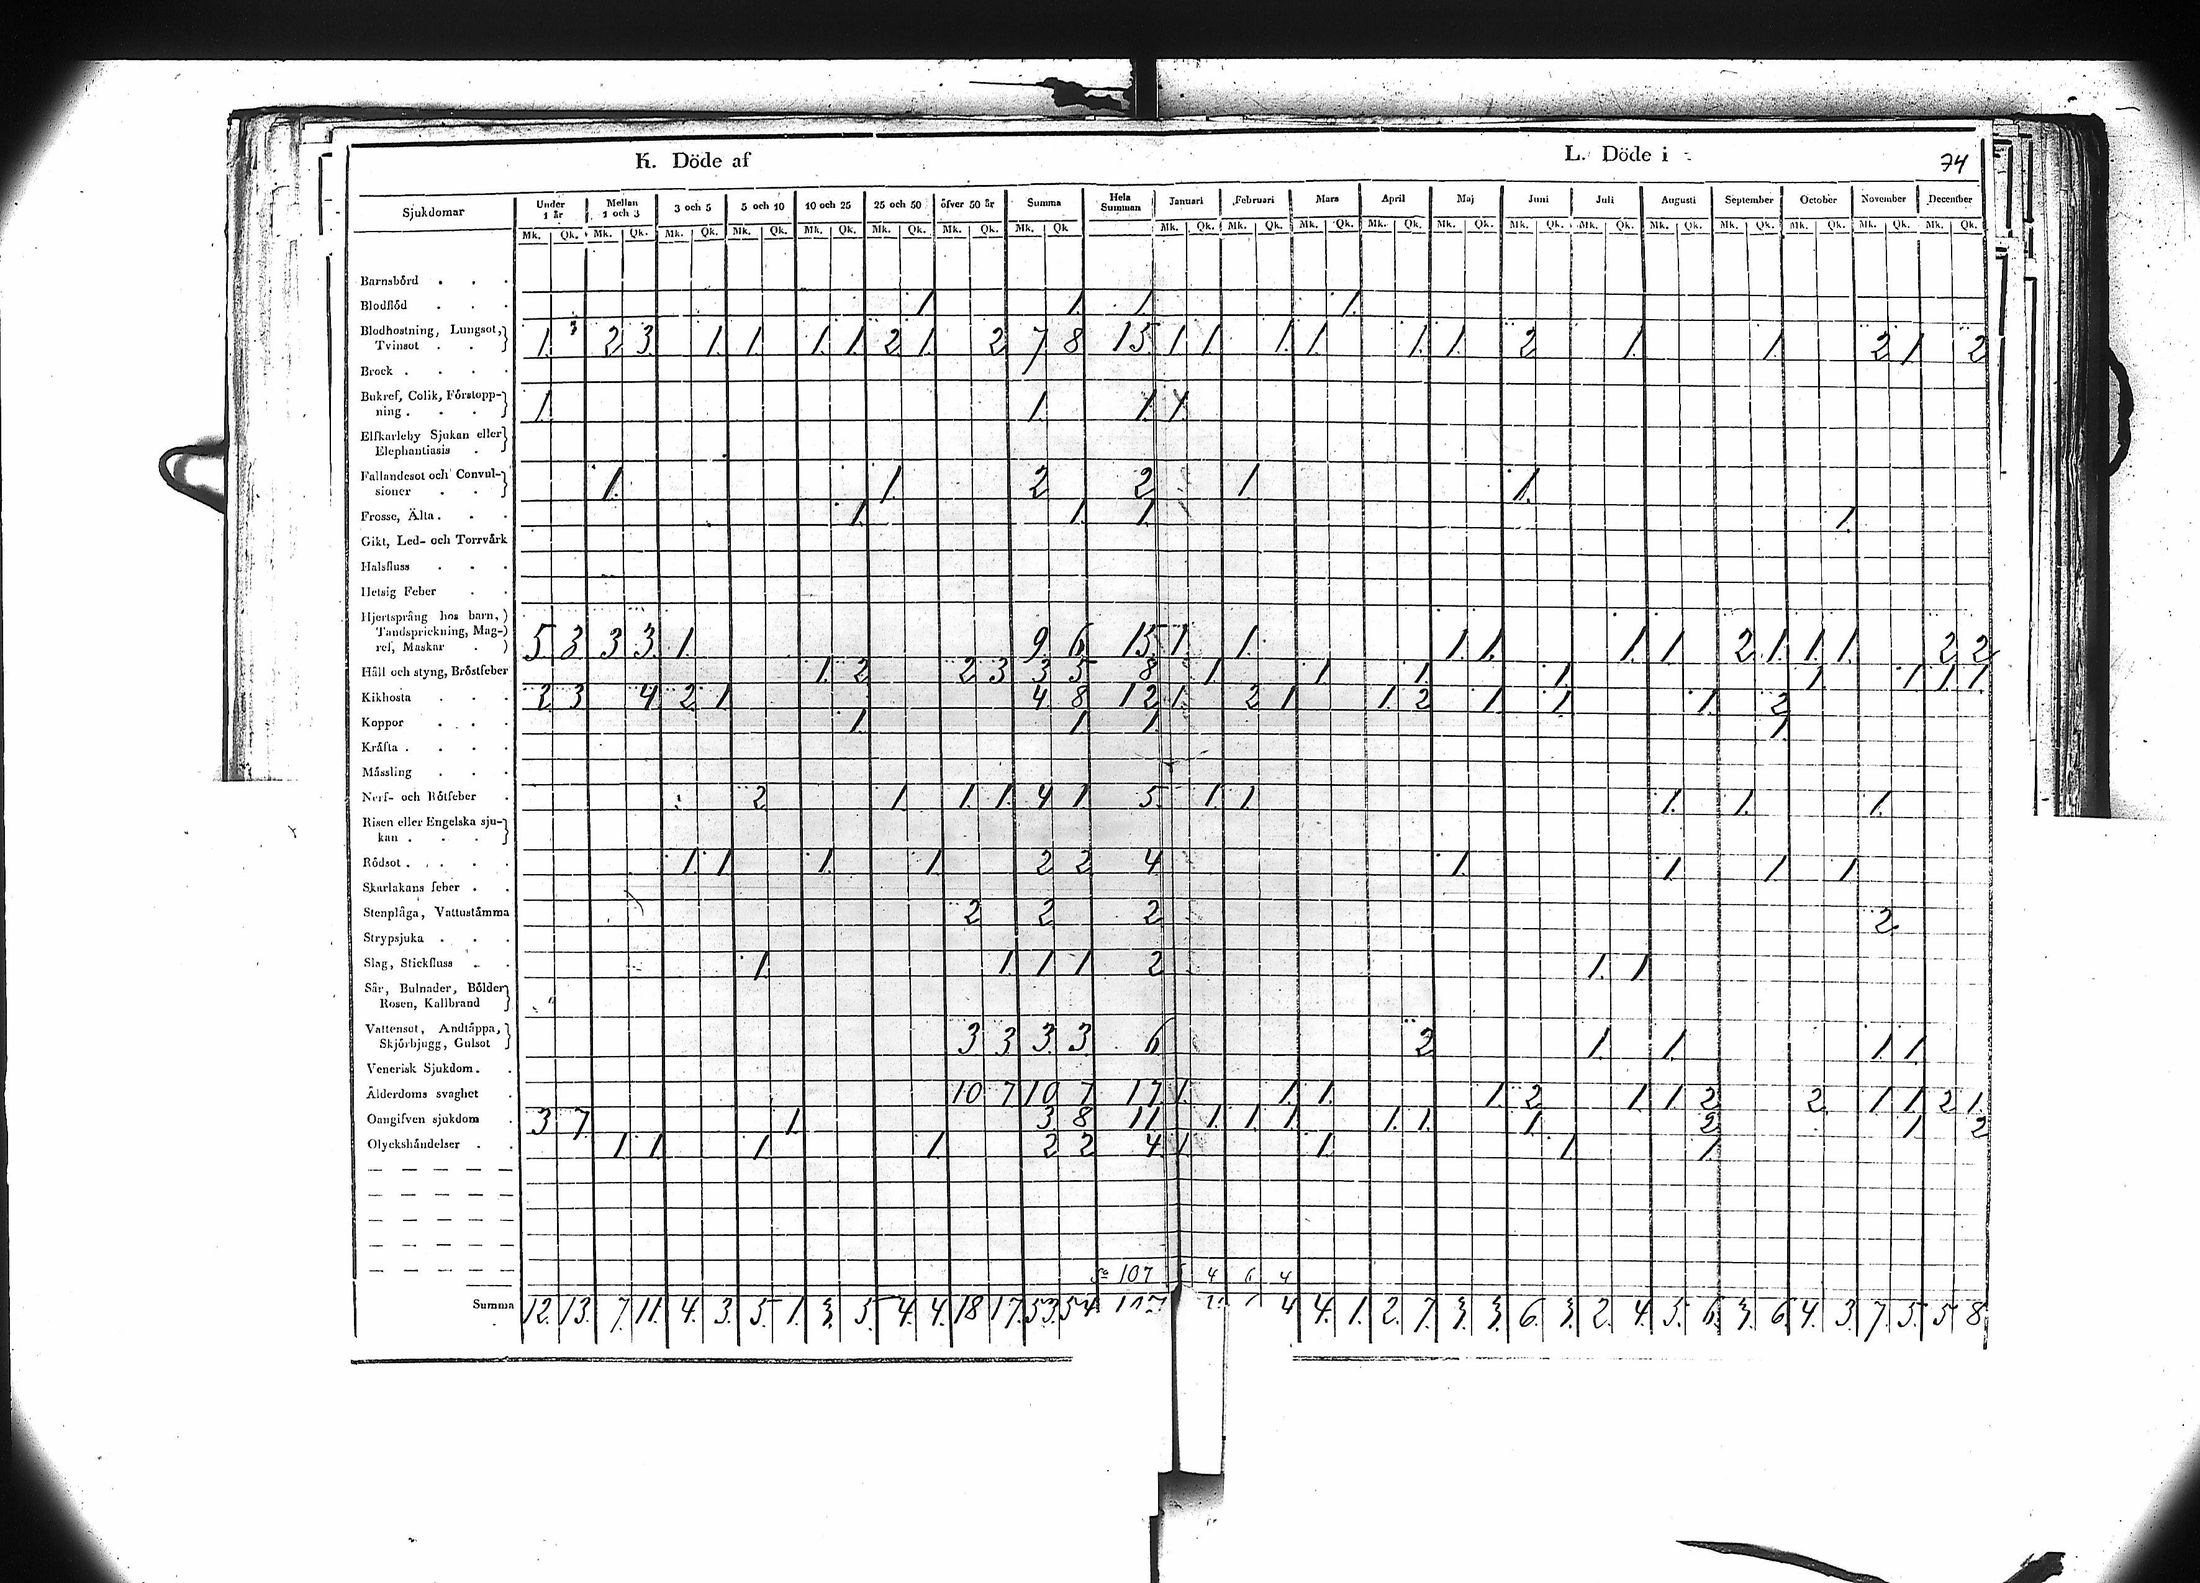 K. Döde af
L. Döde i
74
Sjukdomar Under 1 år Mellan 1 och 3 3 och 5 5 och 10 10 och 25 25 och 50 öfver 50 år Summa Hela Summan Januari Februari Mars April Maj Juni Juli Augusti September October November December
Mk. Qk. Mk. Qk. Mk. Qk. Mk. Qk. Mk. Qk. Mk. Qk. Mk. Qk. Mk. Qk Mk. Qk. Mk. Qk. Mk. Qk. Mk. Qk. Mk. Qk. Mk. Qk. Mk. Qk. Mk. Qk. Mk. Qk. Mk. Qk. Mk. Qk. Mk. Qk.
Barnsbörd
Blodflöd 1 1 1 1.
Blodhostning, Lungsot,
Tvinsot 1. 2 3. 1. 1. 1. 1. 2 1. 2 7 8 15 1 1. 1. 1. 1. 1. 2 1. 1. 2 1 2
Brock
Bukref, Colik, Förstopp-
ning 1. 1. 1. 1.
Elfkarleby Sjukan eller
Elephantiasis
Fallandesot och Convul-
sioner 1. 1. 2 2 1. 1.
Frosse, Älta 1. 1. 1. 1.
Gikt, Led- och Torrvärk
Halsfluss
Hetsig Feber
Hjertsprång hos barn,
Tandsprickning, Mag-
ref, Maskar 5 3 3 3. 1. 9 6 15 1. 1. 1. 1. 1. 1. 2 1. 1. 1. 2 2
Håll och styng, Bröstfeber 1. 2 2 3 3 5 8 1. 1. 1. 1. 1. 1 1. 1.
Kikhosta 2 3 4 2 1 4 8 12 1. 2 1. 1. 2 1. 1. 1. 2
Koppor 1. 1 1. 1.
Kräfta
Mässling
Nerf- och Rötfeber 2 1. 1. 1. 4 1 5 1. 1. 1. 1. 1.
Risen eller Engelska sju-
kan
Rödsot 1. 1 1. 1 2 2 4 1. 1. 1. 1
Skarlakans feber
Stenplåga, Vattustämma 2 2 2 2
Strypsjuka
Slag, Stickfluss 1. 1. 1. 1 2 1. 1.
Sår, Bulnader, Bölder
Rosen, Kallbrand
Vattensot, Andtäppa,
Skjörbjugg, Gulsot 3 3 3 3. 6 2 1. 1. 1. 1.
Venerisk Sjukdom
Ålderdoms svaghet 10 7 10 7 17 1. 1. 1. 1. 2 1. 1 2 2 1 1 2 1.
Oangifven sjukdom 3 7. 1. 3 8 11 1. 1. 1 1. 1. 1. 2 1 2
Olyckshändelser 1. 1. 1 1. 2 2 4 1 1. 1. 1.
107 4 6 4
Summa 12. 13. 7. 11. 4. 3. 5. 1. 3. 5. 4. 4. 18 17. 53. 54 4 4. 1. 2. 7. 3. 3. 6. 3. 2. 4. 5. 6. 3. 6. 4. 3. 7. 5. 5. 8.